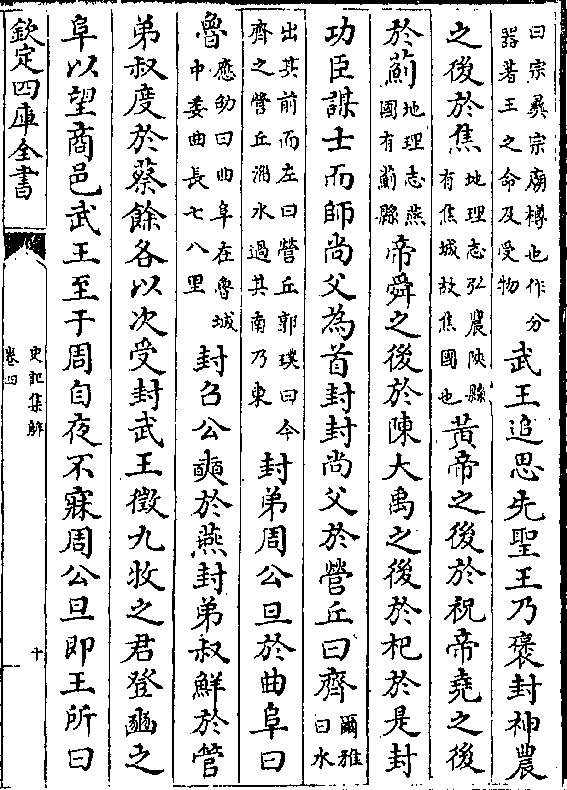 曰宗彝宗廟樽也作分
器著王之命及受物
武王追思先聖王乃褒封神農
之後於焦
地理志弘農陝縣
有焦城故焦國也
黃帝之後於祝帝堯之後
於薊
地理志燕
國有薊縣
帝舜之後於陳大禹之後於杞於是封
功臣謀士而師尚父為首封封尚父於營丘曰齊
爾雅
曰水
出其前而左曰營丘郭璞曰今
齊之營丘淄水過其南乃東
封弟周公旦於曲阜曰
魯
應劭曰曲阜在魯城
中委曲長七八里
封召公奭於燕封弟叔鮮於管
弟叔度於蔡餘各以次受封武王徵九牧之君登豳之
阜以望商邑武王至于周自夜不寐周公旦即王所曰
欽定四庫全書
史記集解
卷四
十